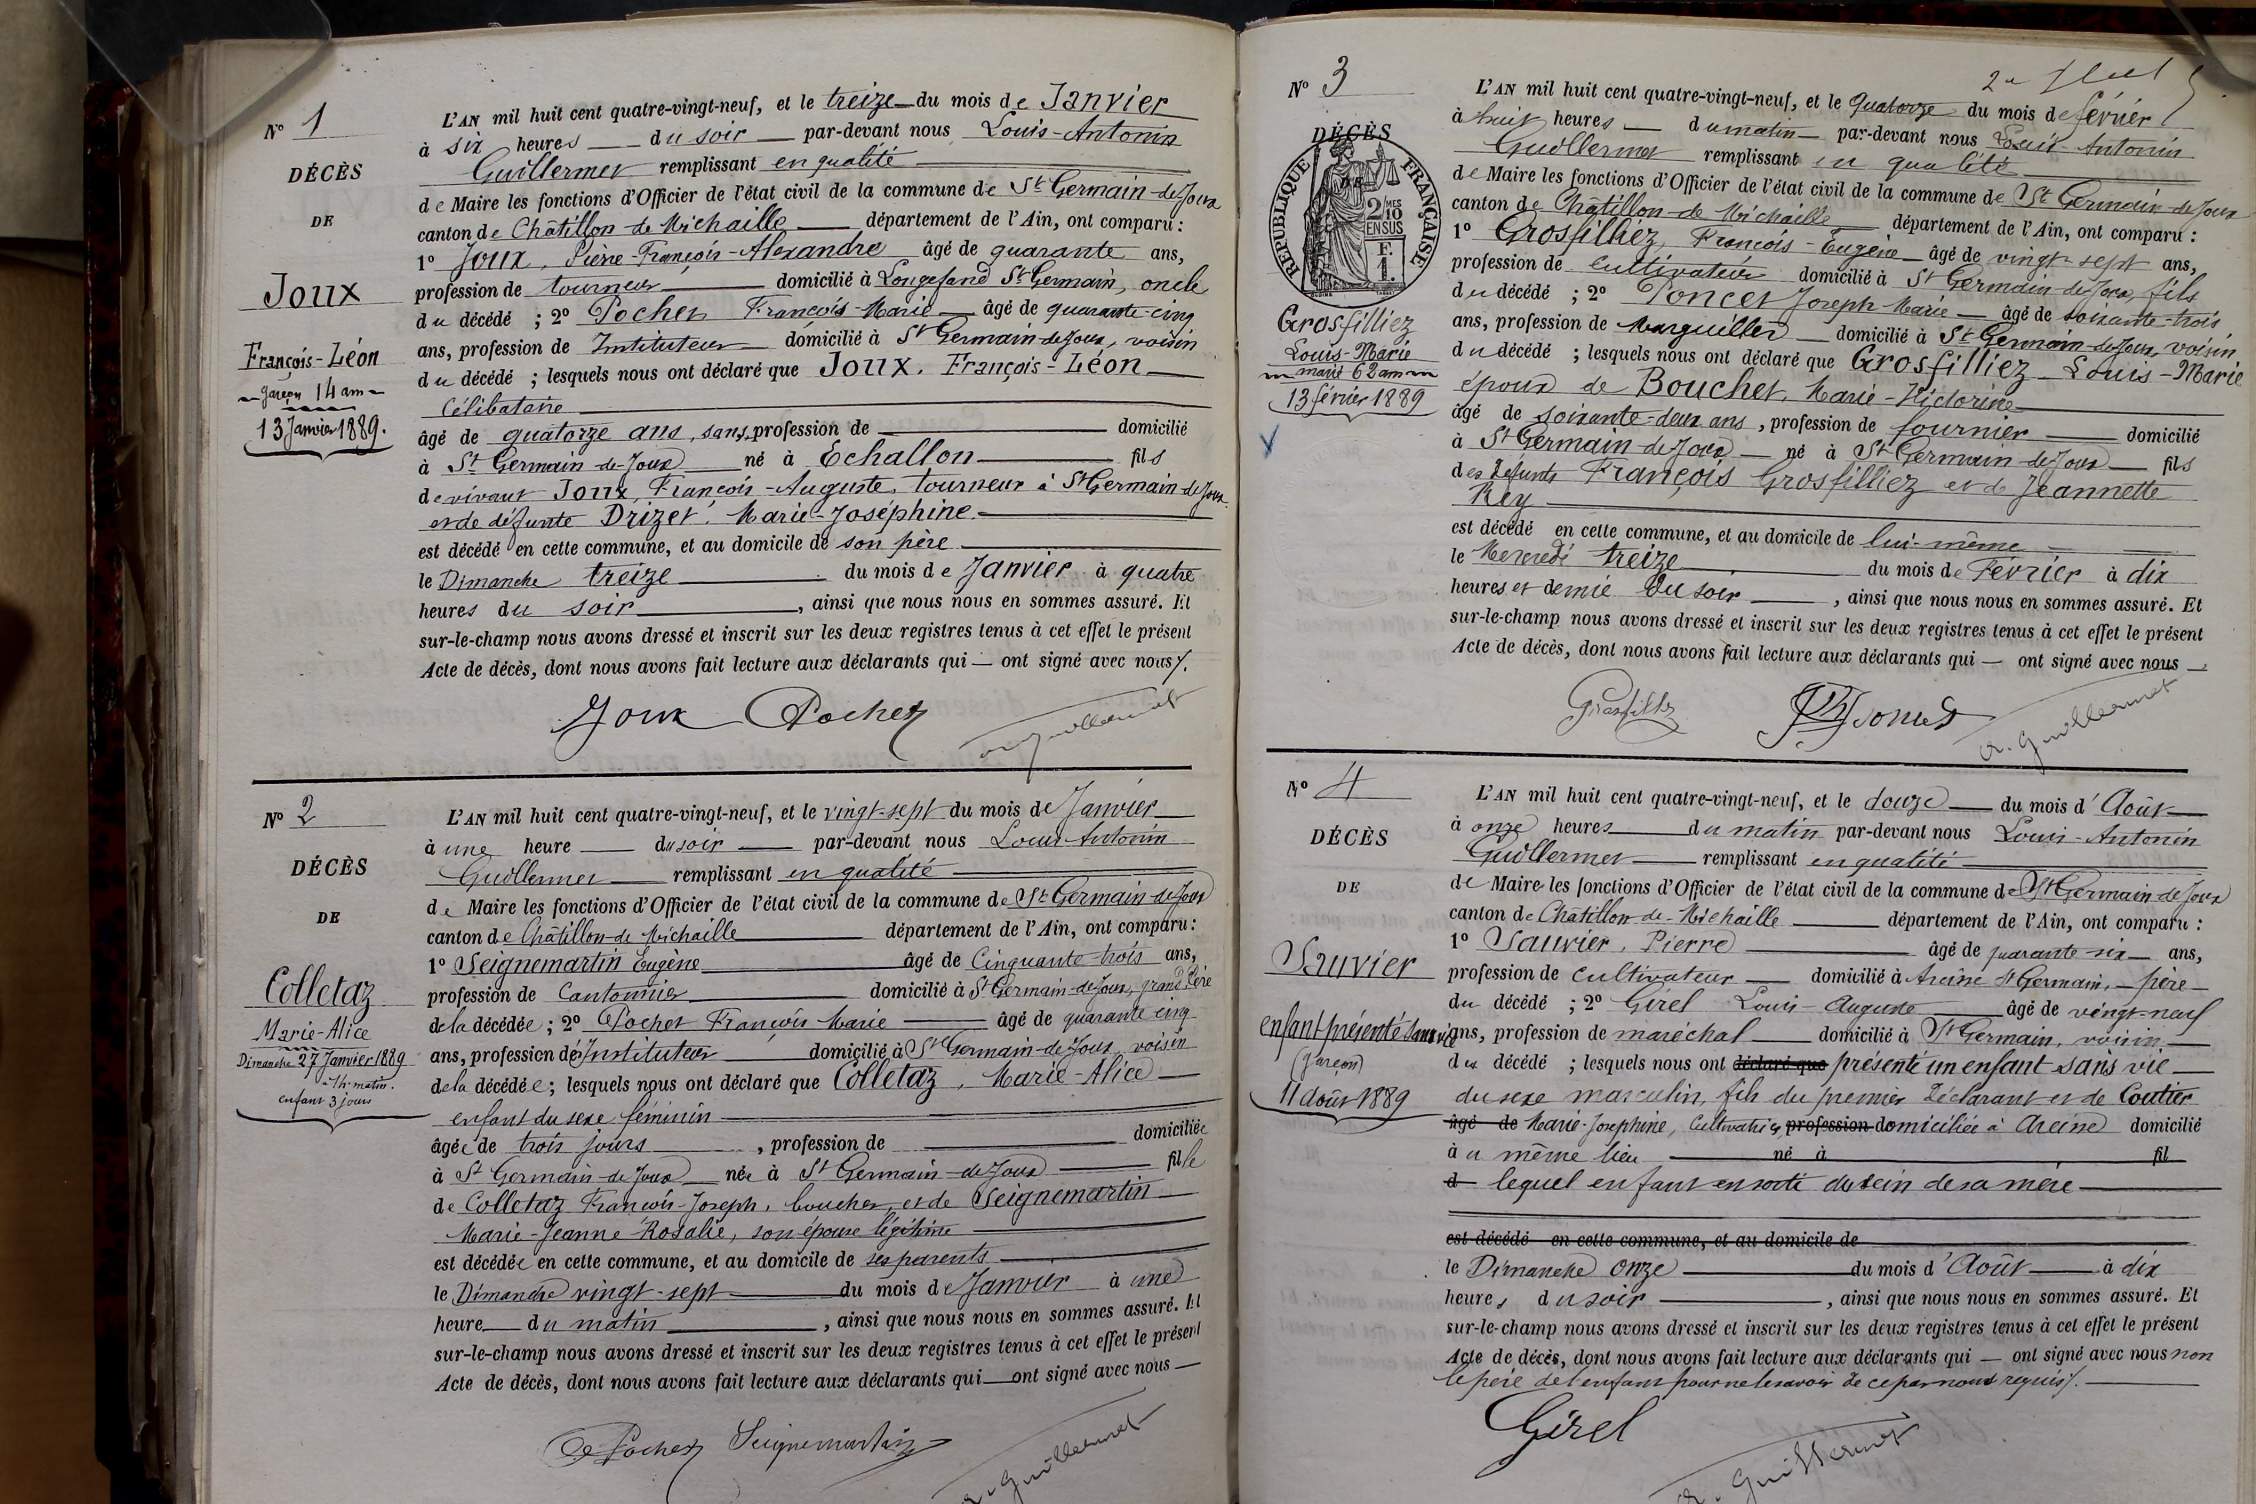 N° 1
DÉCÈS
DE
Joux
François-Léon
garçon 14 ans
13 Janvier 1889.
L'AN mil huit cent quatre-vingt-neuf, et le treize du mois de Janvier
à six heures du soir par-devant nous Louis-Antonin
Guillermet remplissant en qualité
de Maire les fonctions d'Officier de l'état civil de la commune de St Germain-de-Joux
canton de Châtillon-de-Michaille département de l'Ain, ont comparu :
1° Joux, Pierre-François-Alexandre âgé de quarante ans,
profession de tourneur domicilié à Longefand St Germain, oncle
du décédé ; 2° Pochet François-Marie âgé de quarante-cinq
ans, profession de Instituteur domicilié à St Germain-de-Joux, voisin
du décédé ; lesquels nous ont déclaré que Joux, François-Léon
Célibataire
âgé de quatorze ans, sans profession de domicilié
à St Germain-de-Joux né à Echallon fils
de vivant Joux, François-Auguste, tourneur à St Germain-de-Joux
et de défunte Drizet, Marie-Joséphine.
est décédé en cette commune, et au domicile de son père
le Dimanche treize du mois de Janvier à quatre
heures du soir, ainsi que nous nous en sommes assuré. Et
sur-le-champ nous avons dressé et inscrit sur les deux registres tenus à cet effet le présent
Acte de décès, dont nous avons fait lecture aux déclarants qui — ont signé avec nous.
Joux Pochet Guillermet
N° 2
DÉCÈS
DE
Colletaz
Marie-Alice
Dimanche 27 Janvier 1889
à 1 h. matin.
enfant 3 jours
L'AN mil huit cent quatre-vingt-neuf, et le vingt-sept du mois de Janvier
à une heure du soir par-devant nous Louis Antonin
Guillermet remplissant en qualité
de Maire les fonctions d'Officier de l'état civil de la commune de St Germain-de-Joux
canton de Châtillon-de-Michaille département de l'Ain, ont comparu :
1° Seignemartin Eugène âgé de Cinquante-trois ans,
profession de Cantonnier domicilié à St Germain-de-Joux, grand Père
de la décédée ; 2° Pochet François Marie âgé de quarante cinq
ans, profession de Instituteur domicilié à St Germain-de-Joux voisin
de la décédée ; lesquels nous ont déclaré que Colletaz, Marie-Alice
enfant du sexe féminin
âgée de trois jours, profession de domiciliée
à St Germain-de-Joux née à St Germain-de-Joux fille
de Colletaz François-Joseph, boucher, et de Seignemartin
Marie-Jeanne Rosalie, son épouse légitime
est décédée en cette commune, et au domicile de ses parents
le Dimanche vingt-sept du mois de Janvier à une
heure du matin, ainsi que nous nous en sommes assuré. Et
sur-le-champ nous avons dressé et inscrit sur les deux registres tenus à cet effet le présent
Acte de décès, dont nous avons fait lecture aux déclarants qui — ont signé avec nous —
Pochet Seignemartin
A. Guillermet
N° 3
DÉCÈS
DE
RÉPUBLIQUE FRANÇAISE
2 MES 10 EN SUS
F. 1.
Grosfilliez
Louis-Marie
marié 62 ans
13 février 1889
L'AN mil huit cent quatre-vingt-neuf, et le Quatorze du mois de février
à huit heures du matin par-devant nous Louis-Antonin
Guillermet remplissant en qualité
de Maire les fonctions d'Officier de l'état civil de la commune de St Germain-de-Joux
canton de Châtillon-de-Michaille département de l'Ain, ont comparu :
1° Grosfilliez, François-Eugène âgé de vingt-sept ans,
profession de cultivateur domicilié à St Germain-de-Joux, fils
du décédé ; 2° Poncet Joseph-Marie âgé de soixante-trois
ans, profession de Marguillier domicilié à St Germain-de-Joux, voisin
du décédé ; lesquels nous ont déclaré que Grosfilliez Louis-Marie
époux de Bouchet, Marie-Victorine
âgé de soixante-deux ans, profession de fournier domicilié
à St Germain-de-Joux né à St Germain-de-Joux fils
des défunts François Grosfilliez et de Jeannette
Rey
est décédé en cette commune, et au domicile de lui-même
le Mercredi treize du mois de Février à dix
heures et demie du soir, ainsi que nous nous en sommes assuré. Et
sur-le-champ nous avons dressé et inscrit sur les deux registres tenus à cet effet le présent
Acte de décès, dont nous avons fait lecture aux déclarants qui — ont signé avec nous —
Grosfilliez
A. Guillermet
N° 4
DÉCÈS
DE
Sauvier
enfant présenté sans vie
(garçon)
11 août 1889
L'AN mil huit cent quatre-vingt-neuf, et le douze du mois d'Août
à onze heures du matin par-devant nous Louis-Antonin
Guillermet remplissant en qualité
de Maire les fonctions d'Officier de l'état civil de la commune de St Germain-de-Joux
canton de Châtillon-de-Michaille département de l'Ain, ont comparu :
1° Sauvier, Pierre âgé de quarante-six ans,
profession de cultivateur domicilié à Arcine St Germain, père
du décédé ; 2° Girel Louis-Auguste âgé de vingt-neuf
ans, profession de maréchal domicilié à St Germain, voisin
du décédé ; lesquels nous ont déclaré que présenté un enfant sans vie
du sexe masculin, fils du premier Déclarant et de Coutier
âgé de Marie-Josephine, Cultivatrice, profession domiciliée à Arcine domicilié
à u même lieu né à fil
d lequel enfant en sorti du sein de sa mère
est décédé en cette commune, et au domicile de
le Dimanche onze du mois d'Août à dix
heures du soir, ainsi que nous nous en sommes assuré. Et
sur-le-champ nous avons dressé et inscrit sur les deux registres tenus à cet effet le présent
Acte de décès, dont nous avons fait lecture aux déclarants qui — ont signé avec nous non
le père de l'enfant pour ne le savoir de ce par nous requis.
Girel
A. Guillermet